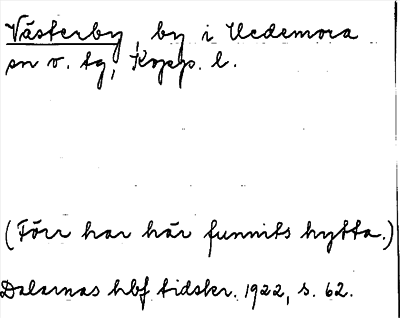 Västerby, by i Hedemora
sn o. tg, Kopp. l.
(Förr har här funnits hytta.)
Dalarnas hbf tidskr. 1922, s. 62.